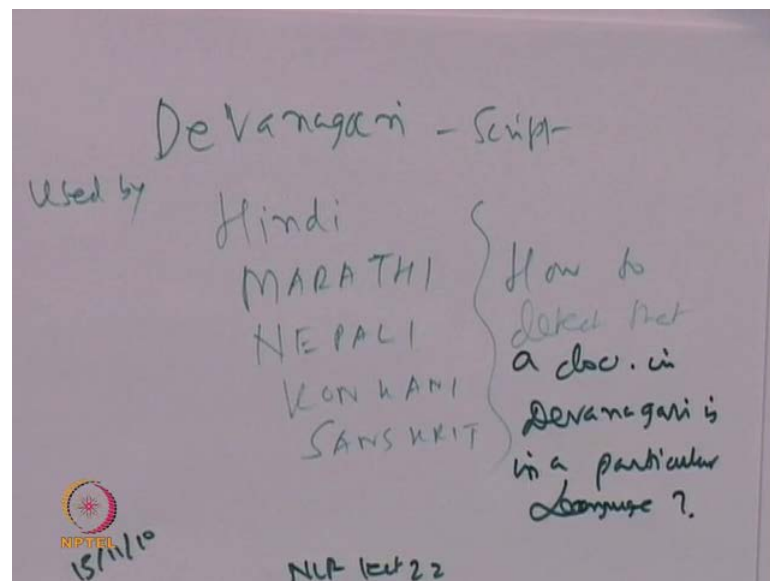 Devanagari - Script
Used by
Hindi
MARATHI
NEPALI
KONKANI
SANSKRIT
How to
detect that
a doc. in
Devanagari is
in a particular
Language ?
NPTEL
15/11/10
NLP lect 22